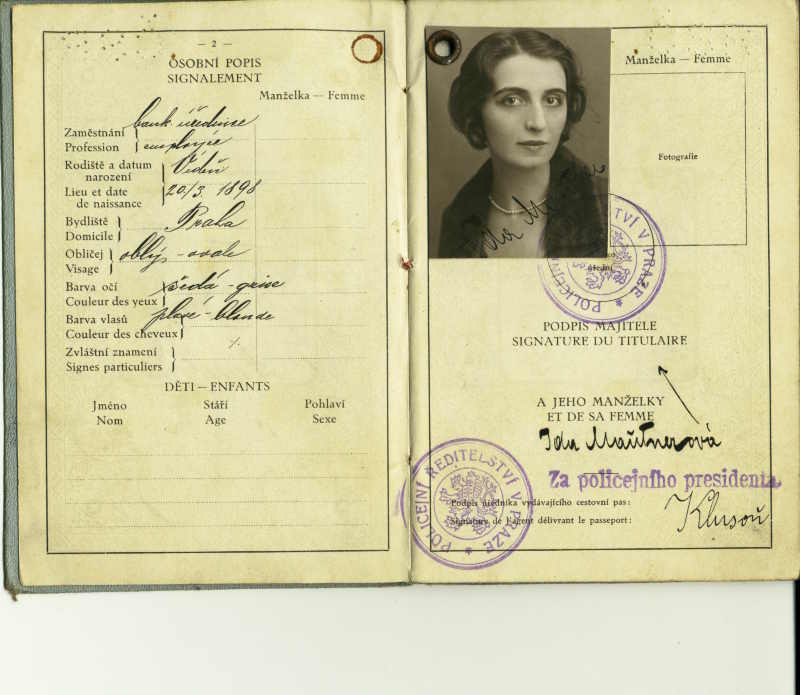 — 2 —
OSOBNÍ POPIS
SIGNALEMENT
Manželka — Femme
Zaměstnání
Profession
bank. úřednice
employée
Rodiště a datum
narození
Vídeň
Lieu et date
de naissance
20/3. 1898
Bydliště
Domicile
Praha
Obličej
Visage
oblý - ovale
Barva očí
Couleur des yeux
šedá - grise
Barva vlasů
Couleur des cheveux
plavé - blonde
Zvláštní znamení
Signes particuliers
%
DĚTI — ENFANTS
Jméno Stáří Pohlaví
Nom Age Sexe
Manželka — Femme
Fotografie
Ida
POLICEJNÍ ŘEDITELSTVÍ V PRAZE *
PODPIS MAJITELE
SIGNATURE DU TITULAIRE
A JEHO MANŽELKY
ET DE SA FEMME
Ida Mautnerová
Za policejního presidenta
Podpis úředníka vydávajícího cestovní pas:
Signature de l'agent délivrant le passeport:
Klusoň
POLICEJNÍ ŘEDITELSTVÍ V PRAZE *